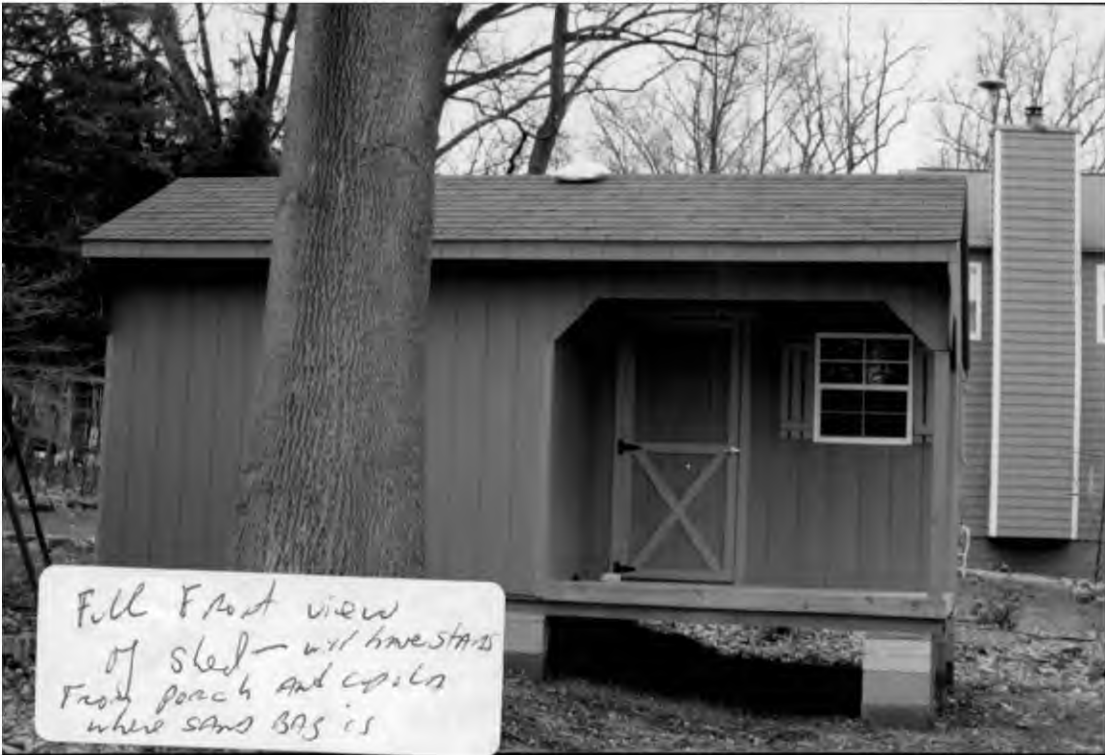 Full Front view
of shed - will have stairs
From porch and cupola
where SAND BAG is